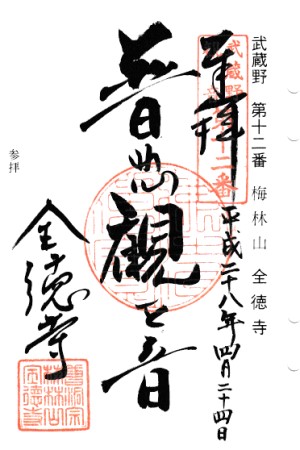 武蔵野 第十二番 梅林山 全徳寺
武蔵野
第十二番
奉拝 平成二十八年四月二十四日
觀世音
全徳寺
参拝
曹洞宗
梅林山
全徳寺